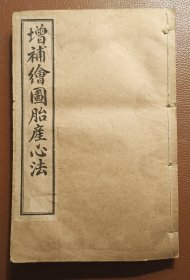 增補繪圖胎產心法